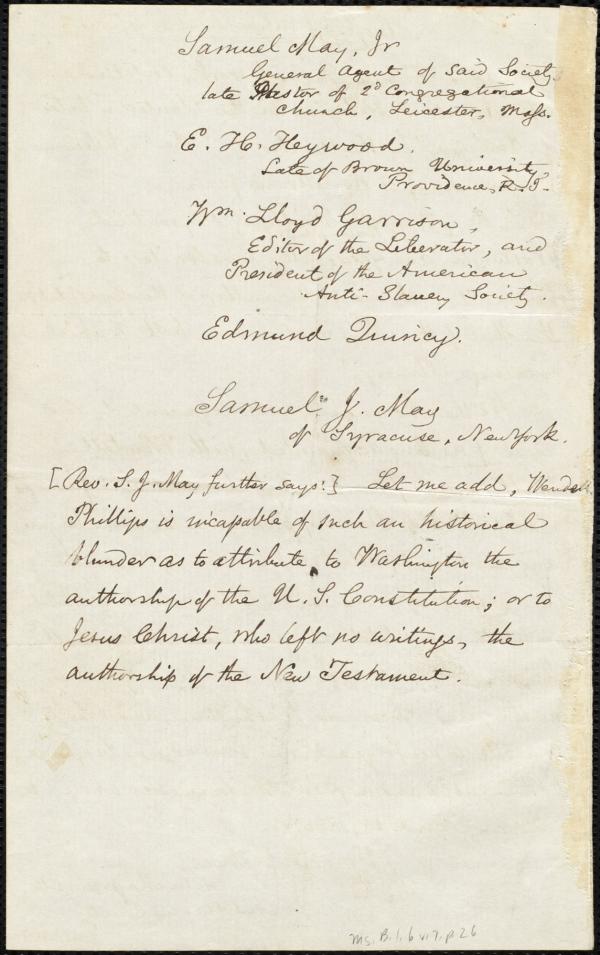 Samuel May, Jr
General Agent of said Society
late Pastor of 2d Congregational
Church, Leicester, Mass.
E. H. Heywood.
Late of Brown University,
Providence, R. I.
Wm. Lloyd Garrison,
Editor of the Liberator, and
President of the American
Anti-Slavery Society.
Edmund Quincy.
Samuel J. May
of Syracuse, New York.
[Rev. S. J. May further says:] Let me add, Wendell
Phillips is incapable of such an historical
blunder as to attribute to Washington the
authorship of the U. S. Constitution; or to
Jesus Christ, who left no writings, the
authorship of the New Testament.
Ms. B. 1. 6 v. 7, p. 26